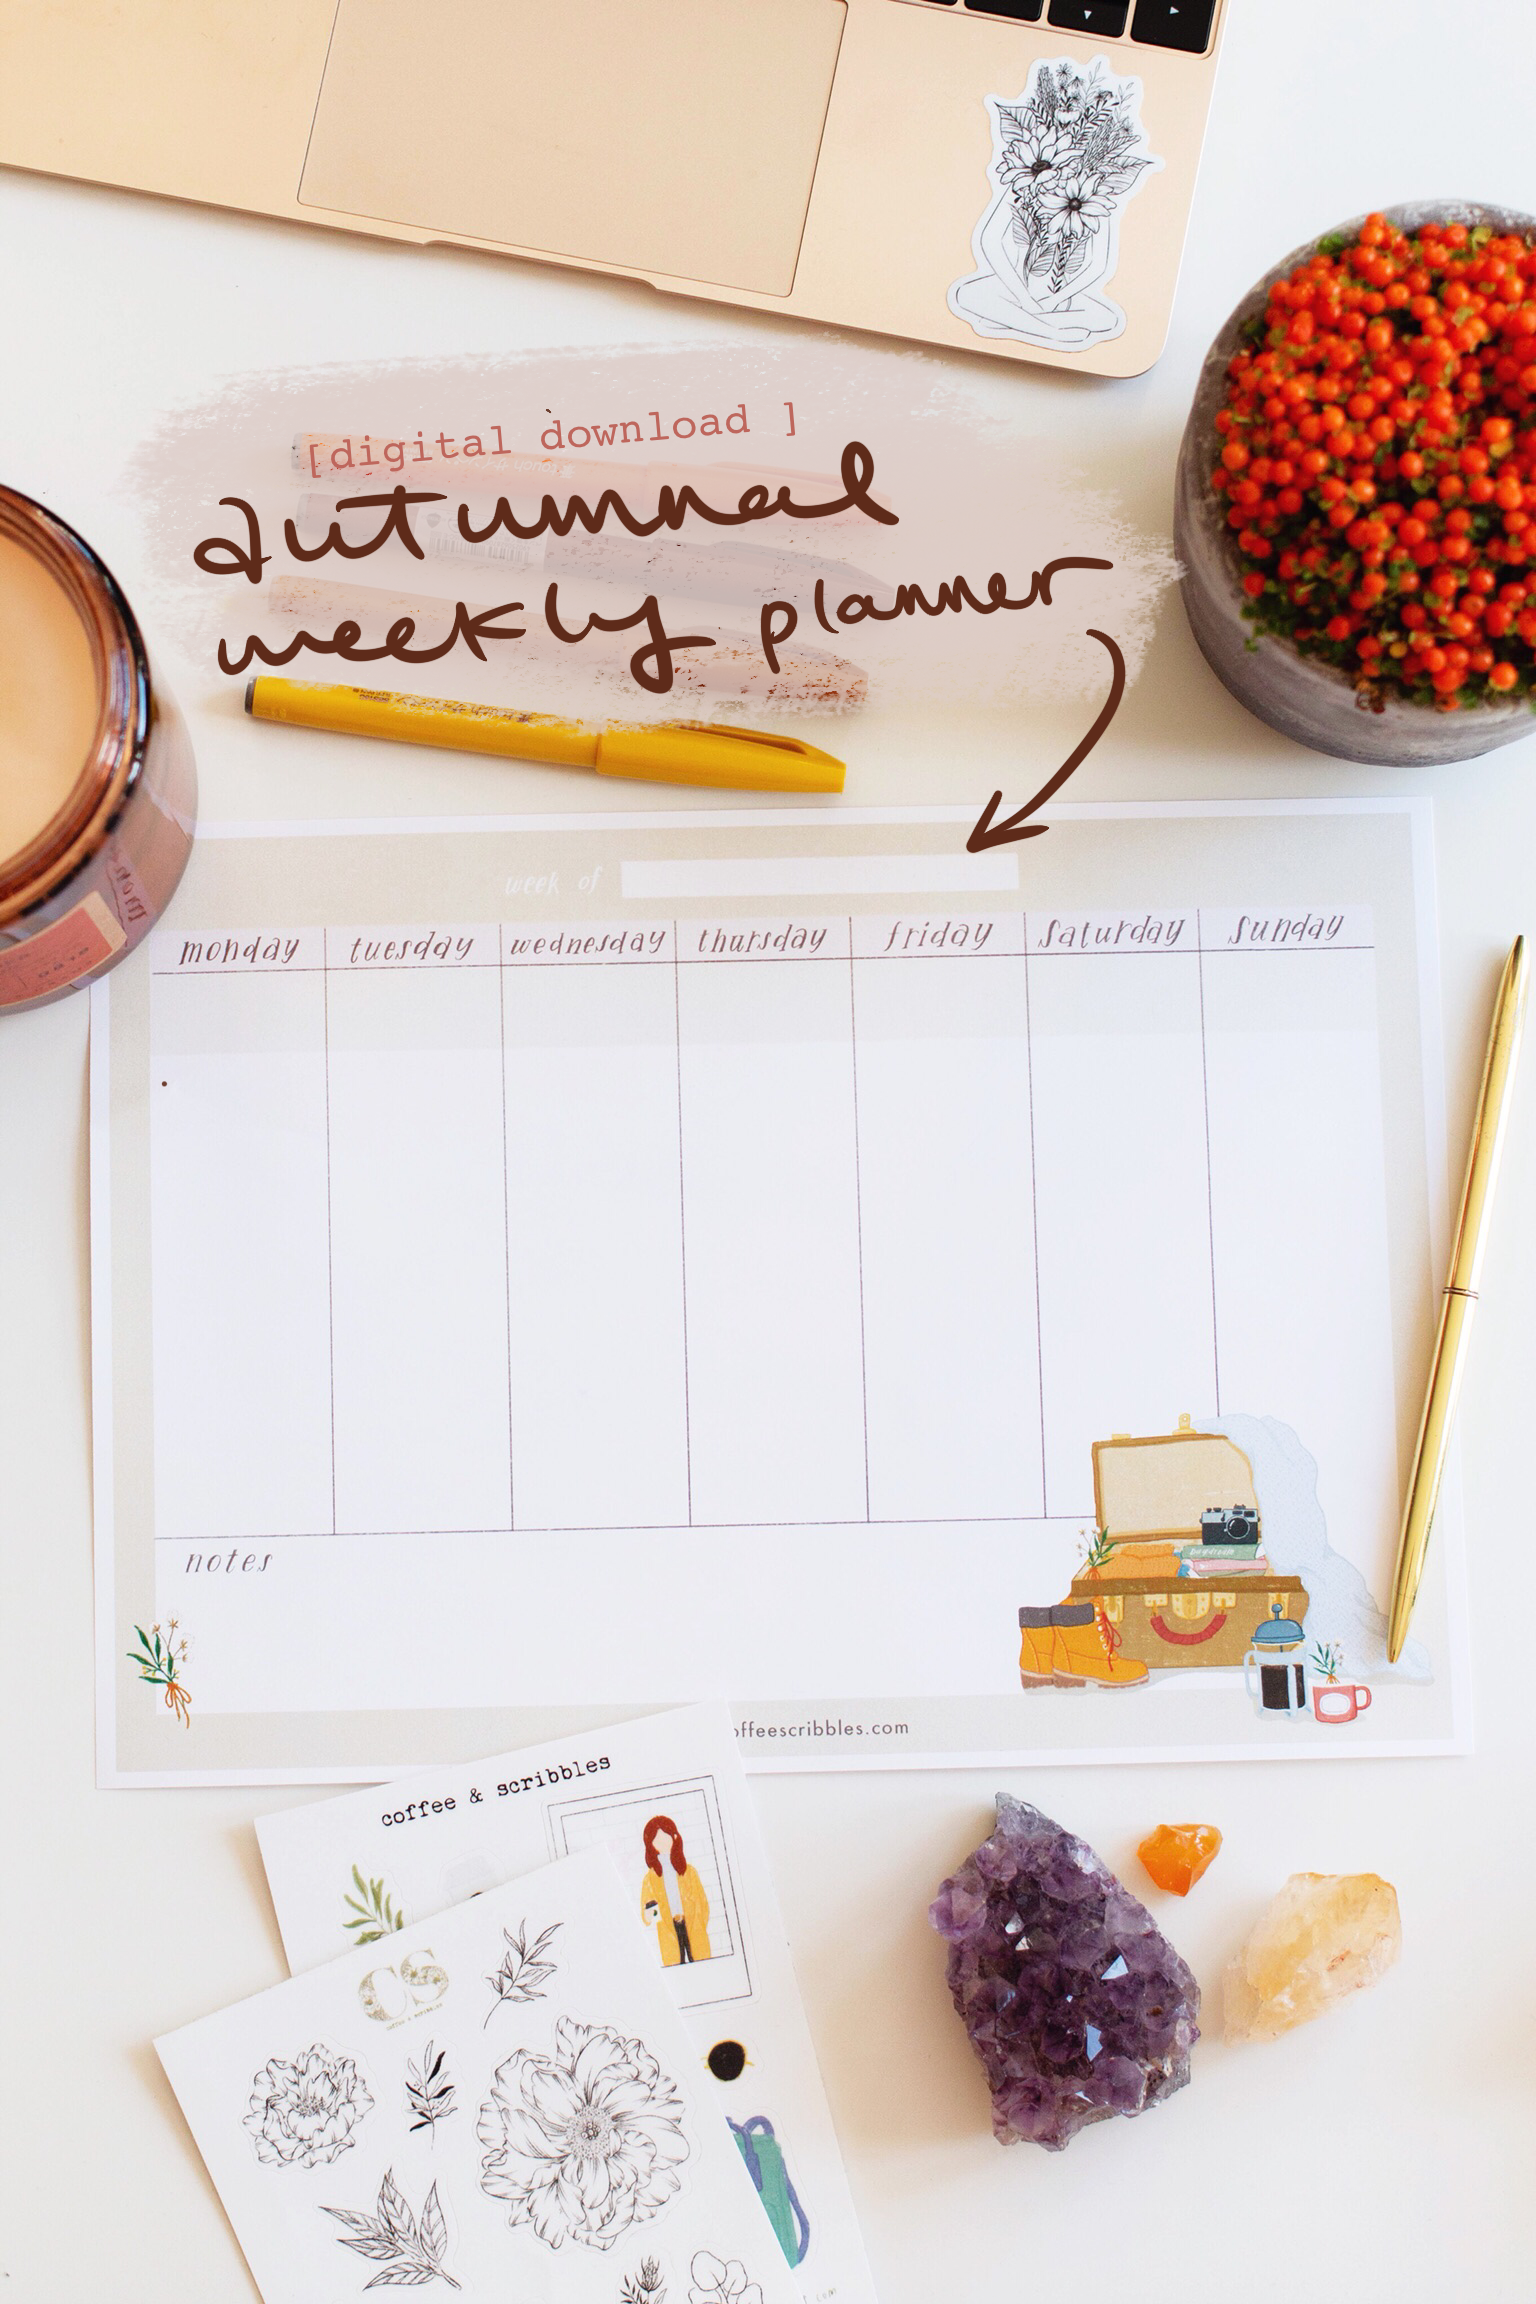 [digital download ]
autumnal
weekly planner
week of
monday tuesday wednesday thursday friday saturday sunday
notes
offeescribbles.com
coffee & scribbles
CS